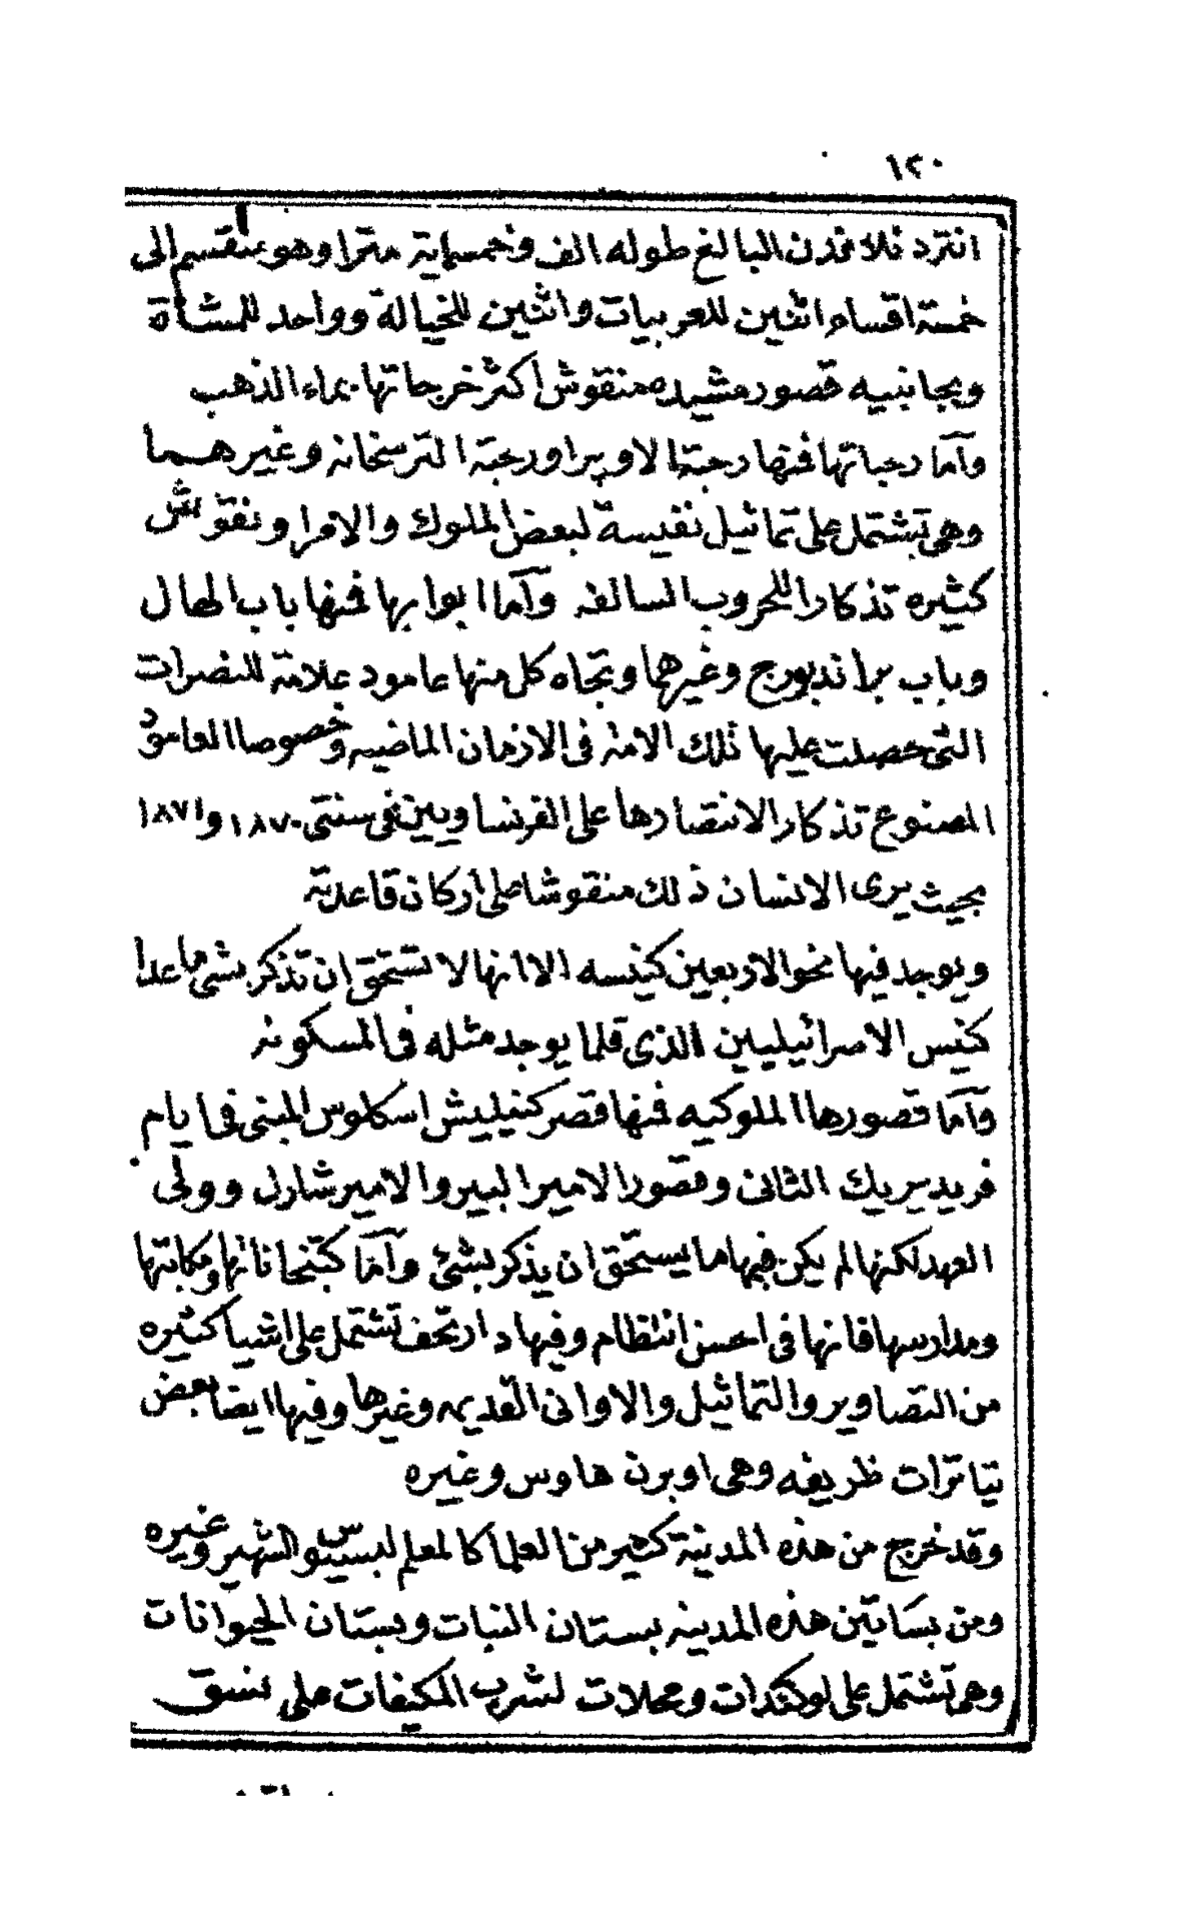 ١٢٠
انتردنلاندن البالغ طوله الف وخمسماية مترا وهو منقسم الى
خمسة اقسام اثنين للعربيات واثنين للخيالة وواحد للمشاة
وبجانبيه قصور مشيده منقوش اكثر خرجاتها بماء الذهب
وآما رحباتها فمنها رحبة الاوپرا ورحبة الترسخانه وغيرهما
وهى تشتمل على تماثيل نفيسة لبعض الملوك والامرا ونقوش
كثيره تذكارا للحروب السالفه وآما ابوابها فمنها باب الهال
وباب براندبورج وغيرهما وتجاه كل منها عامود علامة للنصرات
التى حصلت عليها تلك الامه فى الازمان الماضيه وخصوصا العامود
المصنوع تذكار الانتصارها على الفرنساويين فى سنتى ١٨٧٠ و١٨٧١
بحيث يرى الانسان ذلك منقوشا على اركان قاعدته
ويوجد فيها نحو الاربعين كنيسه الا انها لا تستحق ان تذكر بشئ ما عدا
كنيس الاسرائيليين الذى قلما يوجد مثله فى المسكونه
وآما قصورها الملوكيه فمنها قصر كنيليش اسكلوس المبنى فى ايام
فريديريك الثانى وقصور الامير البير والامير شارل وولى
العهد لكنها لم يكن فيها ما يستحق ان يذكر بشئ وآما كتبخاناتها ومكاتبها
ومدارسها فانها فى احسن انتظام وفيها دار تحف تشتمل على اشيا كثيره
من التصاوير والتماثيل والاوانى القديمه وغيرها وفيها ايضا بعض
تياترات ظريفه وهى اوبرن هاوس وغيره
وقد خرج من هذه المدينة كثير من العلما كالمعلم لبسيوس الشهير وغيره
ومن بساتين هذه المدينه بستان النبات وبستان الحيوانات
وهى تشتمل على لوكندات ومحلات لشرب المكيفات على نسق